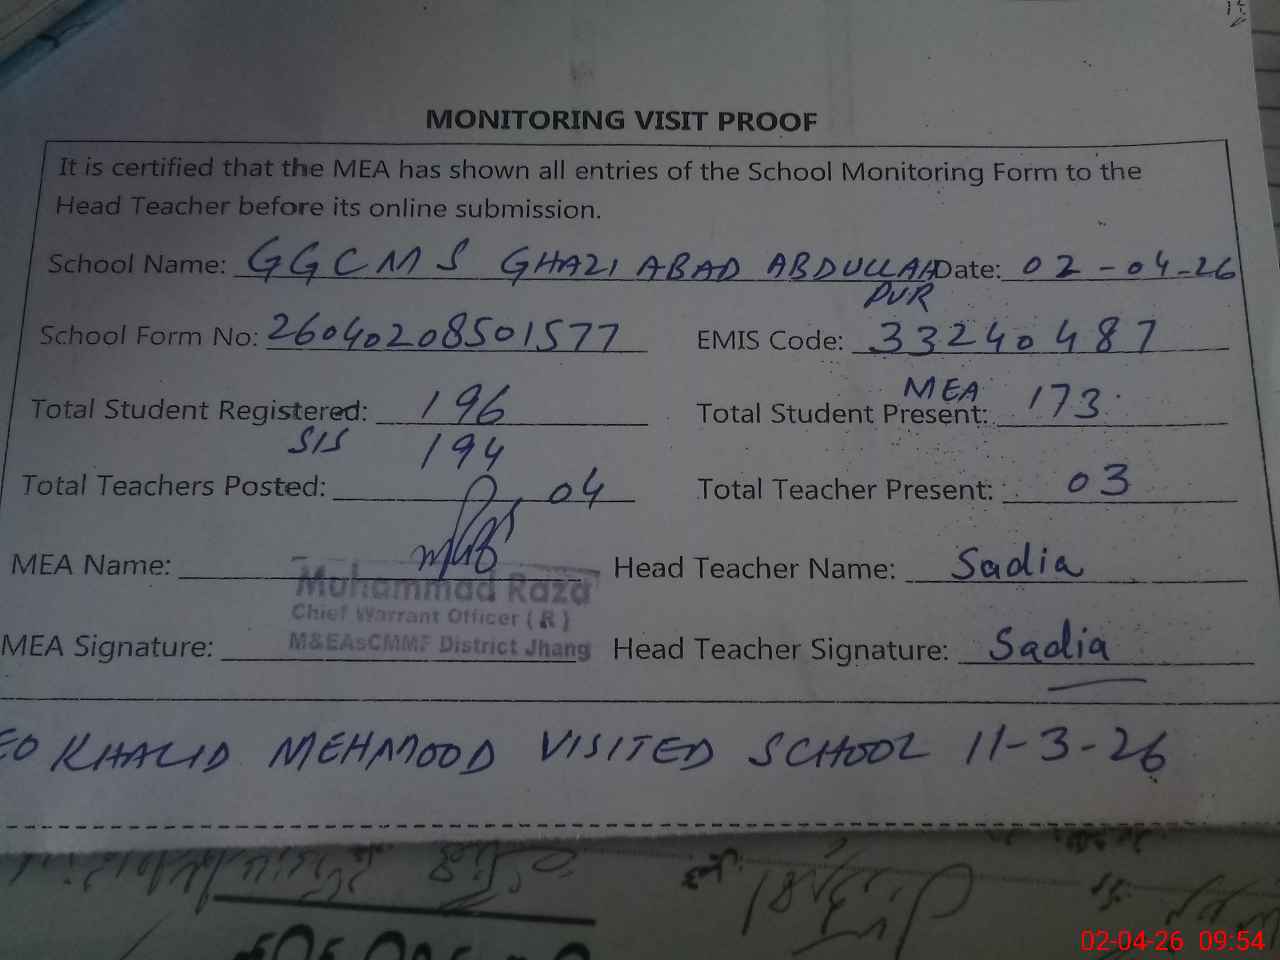 MONITORING VISIT PROOF
It is certified that the MEA has shown all entries of the School Monitoring Form to the
Head Teacher before its online submission.
School Name: GGCMS GHAZI ABAD ABDULLAH Date: 02-04-26
PUR
School Form No: 26040208501577 EMIS Code: 33240487
MEA
Total Student Registered: 196 Total Student Present: 173
SIS 194
Total Teachers Posted: 04 Total Teacher Present: 03
MEA Name: Head Teacher Name: Sadia
Muhammad Raza
Chief Warrant Officer (R)
M&EAsCMMF District Jhang
MEA Signature: Head Teacher Signature: Sadia
EO KHALID MEHMOOD VISITED SCHOOL 11-3-26
02-04-26 09:54